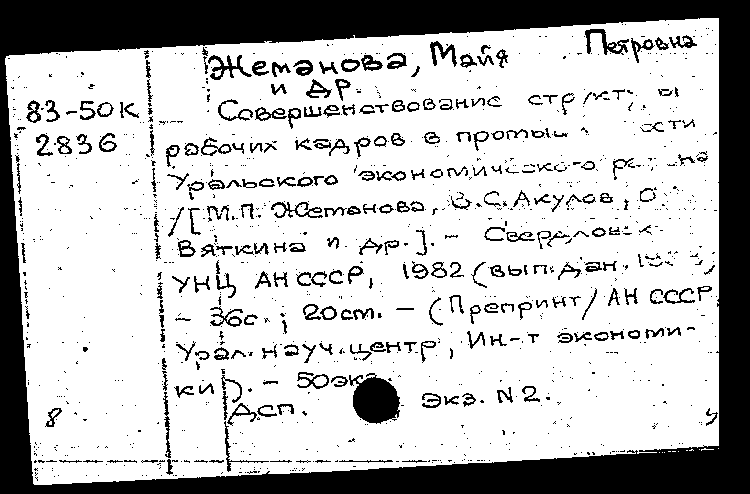 Жеманова, Майя Петровна
и др.
83-50К
2836
Совершенствование
рабочих кадров в
Уральского экономического
/[М.П. Жеманова, В.С. Акулов,
Вяткина и др.]. - Свердловск
УНЦ АН СССР, 1982 (вып. дан.
- 36с.; 20см. - (Препринт / АН СССР
Урал. науч. центр, Ин-т экономи-
ки). - 50экз
ДСП. Экз. N 2.
8